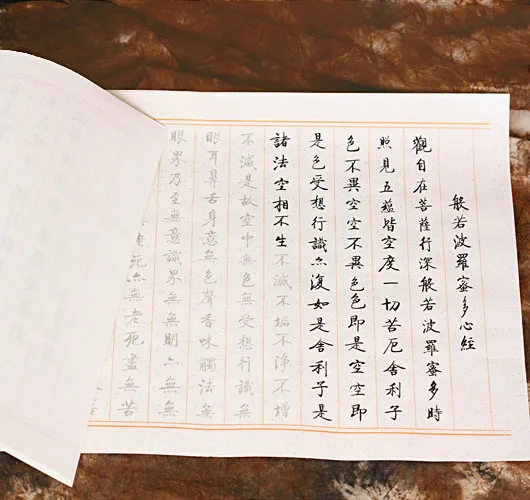 般若波羅蜜多心經
觀自在菩薩行深般若波羅蜜多時
照見五蘊皆空度一切苦厄舍利子
色不異空空不異色色即是空空即
是色受想行識亦復如是舍利子是
諸法空相不生不滅不垢不淨不增
不減是故空中無色無受想行識無
眼耳鼻舌身意無色聲香味觸法無
眼界乃至無意識界無無明亦無無
老死亦無老死盡無苦